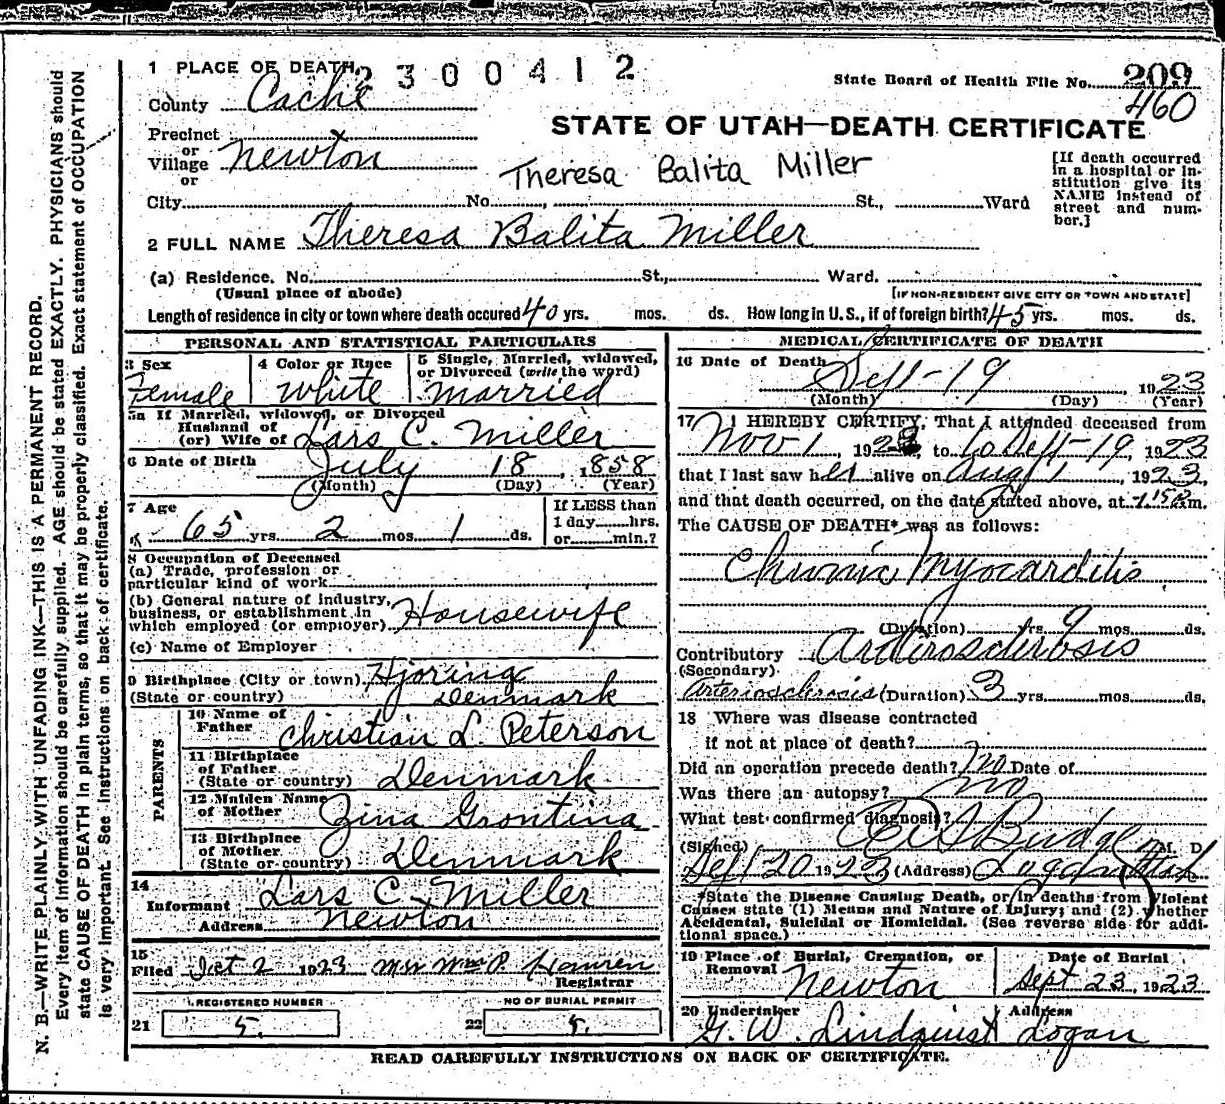 1 PLACE OF DEATH 2300412
State Board of Health File No. 209
460
County Cache
STATE OF UTAH—DEATH CERTIFICATE
Precinct
or
Village Newton
or
Theresa Balita Miller
[If death occurred in a hospital or institution give its NAME instead of street and number.]
City No. , St., Ward
2 FULL NAME Theresa Balita Miller
(a) Residence. No. St., Ward.
(Usual place of abode) [IF NON-RESIDENT GIVE CITY OR TOWN AND STATE]
Length of residence in city or town where death occured 40 yrs. mos. ds. How long in U. S., if of foreign birth? 45 yrs. mos. ds.
PERSONAL AND STATISTICAL PARTICULARS
3 Sex Female
4 Color or Race White
5 Single, Married, widowed, or Divorced (write the word) Married
5a If Married, widowed, or Divorced
Husband of
(or) Wife of Lars C. Miller
6 Date of Birth July 18, 1858
(Month) (Day) (Year)
7 Age 65 yrs. 2 mos. 1 ds.
If LESS than
1 day hrs.
or min.?
8 Occupation of Deceased
(a) Trade, profession or
particular kind of work
(b) General nature of industry,
business, or establishment in
which employed (or employer) Housewife
(c) Name of Employer
9 Birthplace (City or town) Hjoring
(State or country) Denmark
PARENTS
10 Name of
Father Christian L. Peterson
11 Birthplace
of Father
(State or country) Denmark
12 Maiden Name
of Mother Zina Grontina
13 Birthplace
of Mother
(State or country) Denmark
14
Informant Lars C. Miller
Address Newton
15
Filed Oct 2 1923 Mrs Wm P.
Registrar
REGISTERED NUMBER
21 5.
NO OF BURIAL PERMIT
22 5.
MEDICAL CERTIFICATE OF DEATH
16 Date of Death Sept-19, 1923
(Month) (Day) (Year)
17 I HEREBY CERTIFY, That I attended deceased from
Nov 1, 192 , to Sept-19, 1923
that I last saw her alive on Aug 1, 1923,
and that death occurred, on the date stated above, at m.
The CAUSE OF DEATH* was as follows:
Chronic Myocarditis
(Duration) yrs. 9 mos. ds.
Contributory Arteriosclerosis
(Secondary)
Arteriosclerosis (Duration) 3 yrs. mos. ds.
18 Where was disease contracted
if not at place of death?
Did an operation precede death? No Date of
Was there an autopsy? No
What test confirmed diagnosis?
(Signed) Budge M. D.
Sept 20 1923 (Address) Logan Utah
*State the Disease Causing Death, or in deaths from Violent
Causes state (1) Means and Nature of Injury; and (2) whether
Accidental, Suicidal or Homicidal. (See reverse side for addi-
tional space.)
19 Place of Burial, Cremation, or
Removal Newton
Date of Burial
Sept 23, 1923
20 Undertaker G. W. Lindquist
Address Logan
READ CAREFULLY INSTRUCTIONS ON BACK OF CERTIFICATE.
N. B.—WRITE PLAINLY WITH UNFADING INK—THIS IS A PERMANENT RECORD.
Every item of information should be carefully supplied. AGE should be stated EXACTLY. PHYSICIANS should
state CAUSE OF DEATH in plain terms, so that it may be properly classified. Exact statement of OCCUPATION
is very important. See instructions on back of certificate.